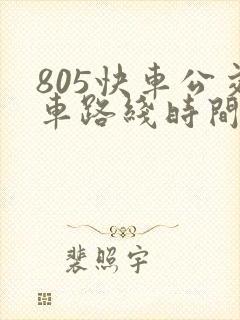 805快車公交
車路綫時間
裴照宇